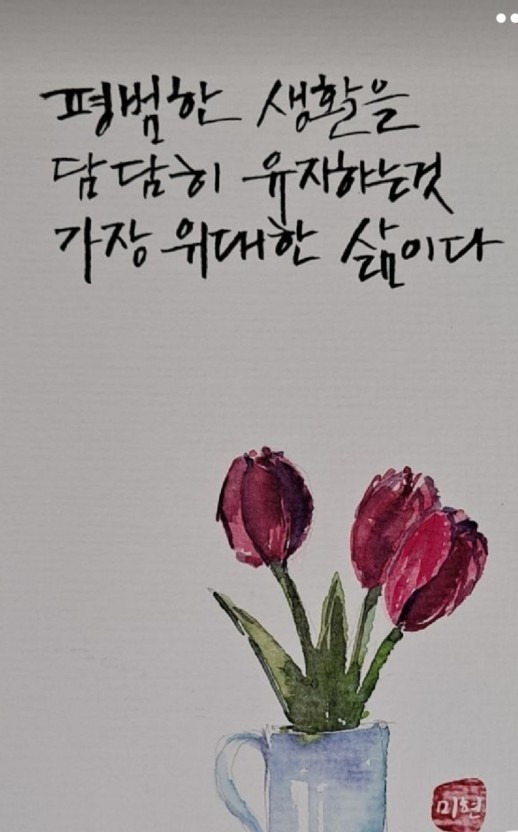 평범한 생활을
담담히 유지하는것
가장 위대한 삶이다
미현